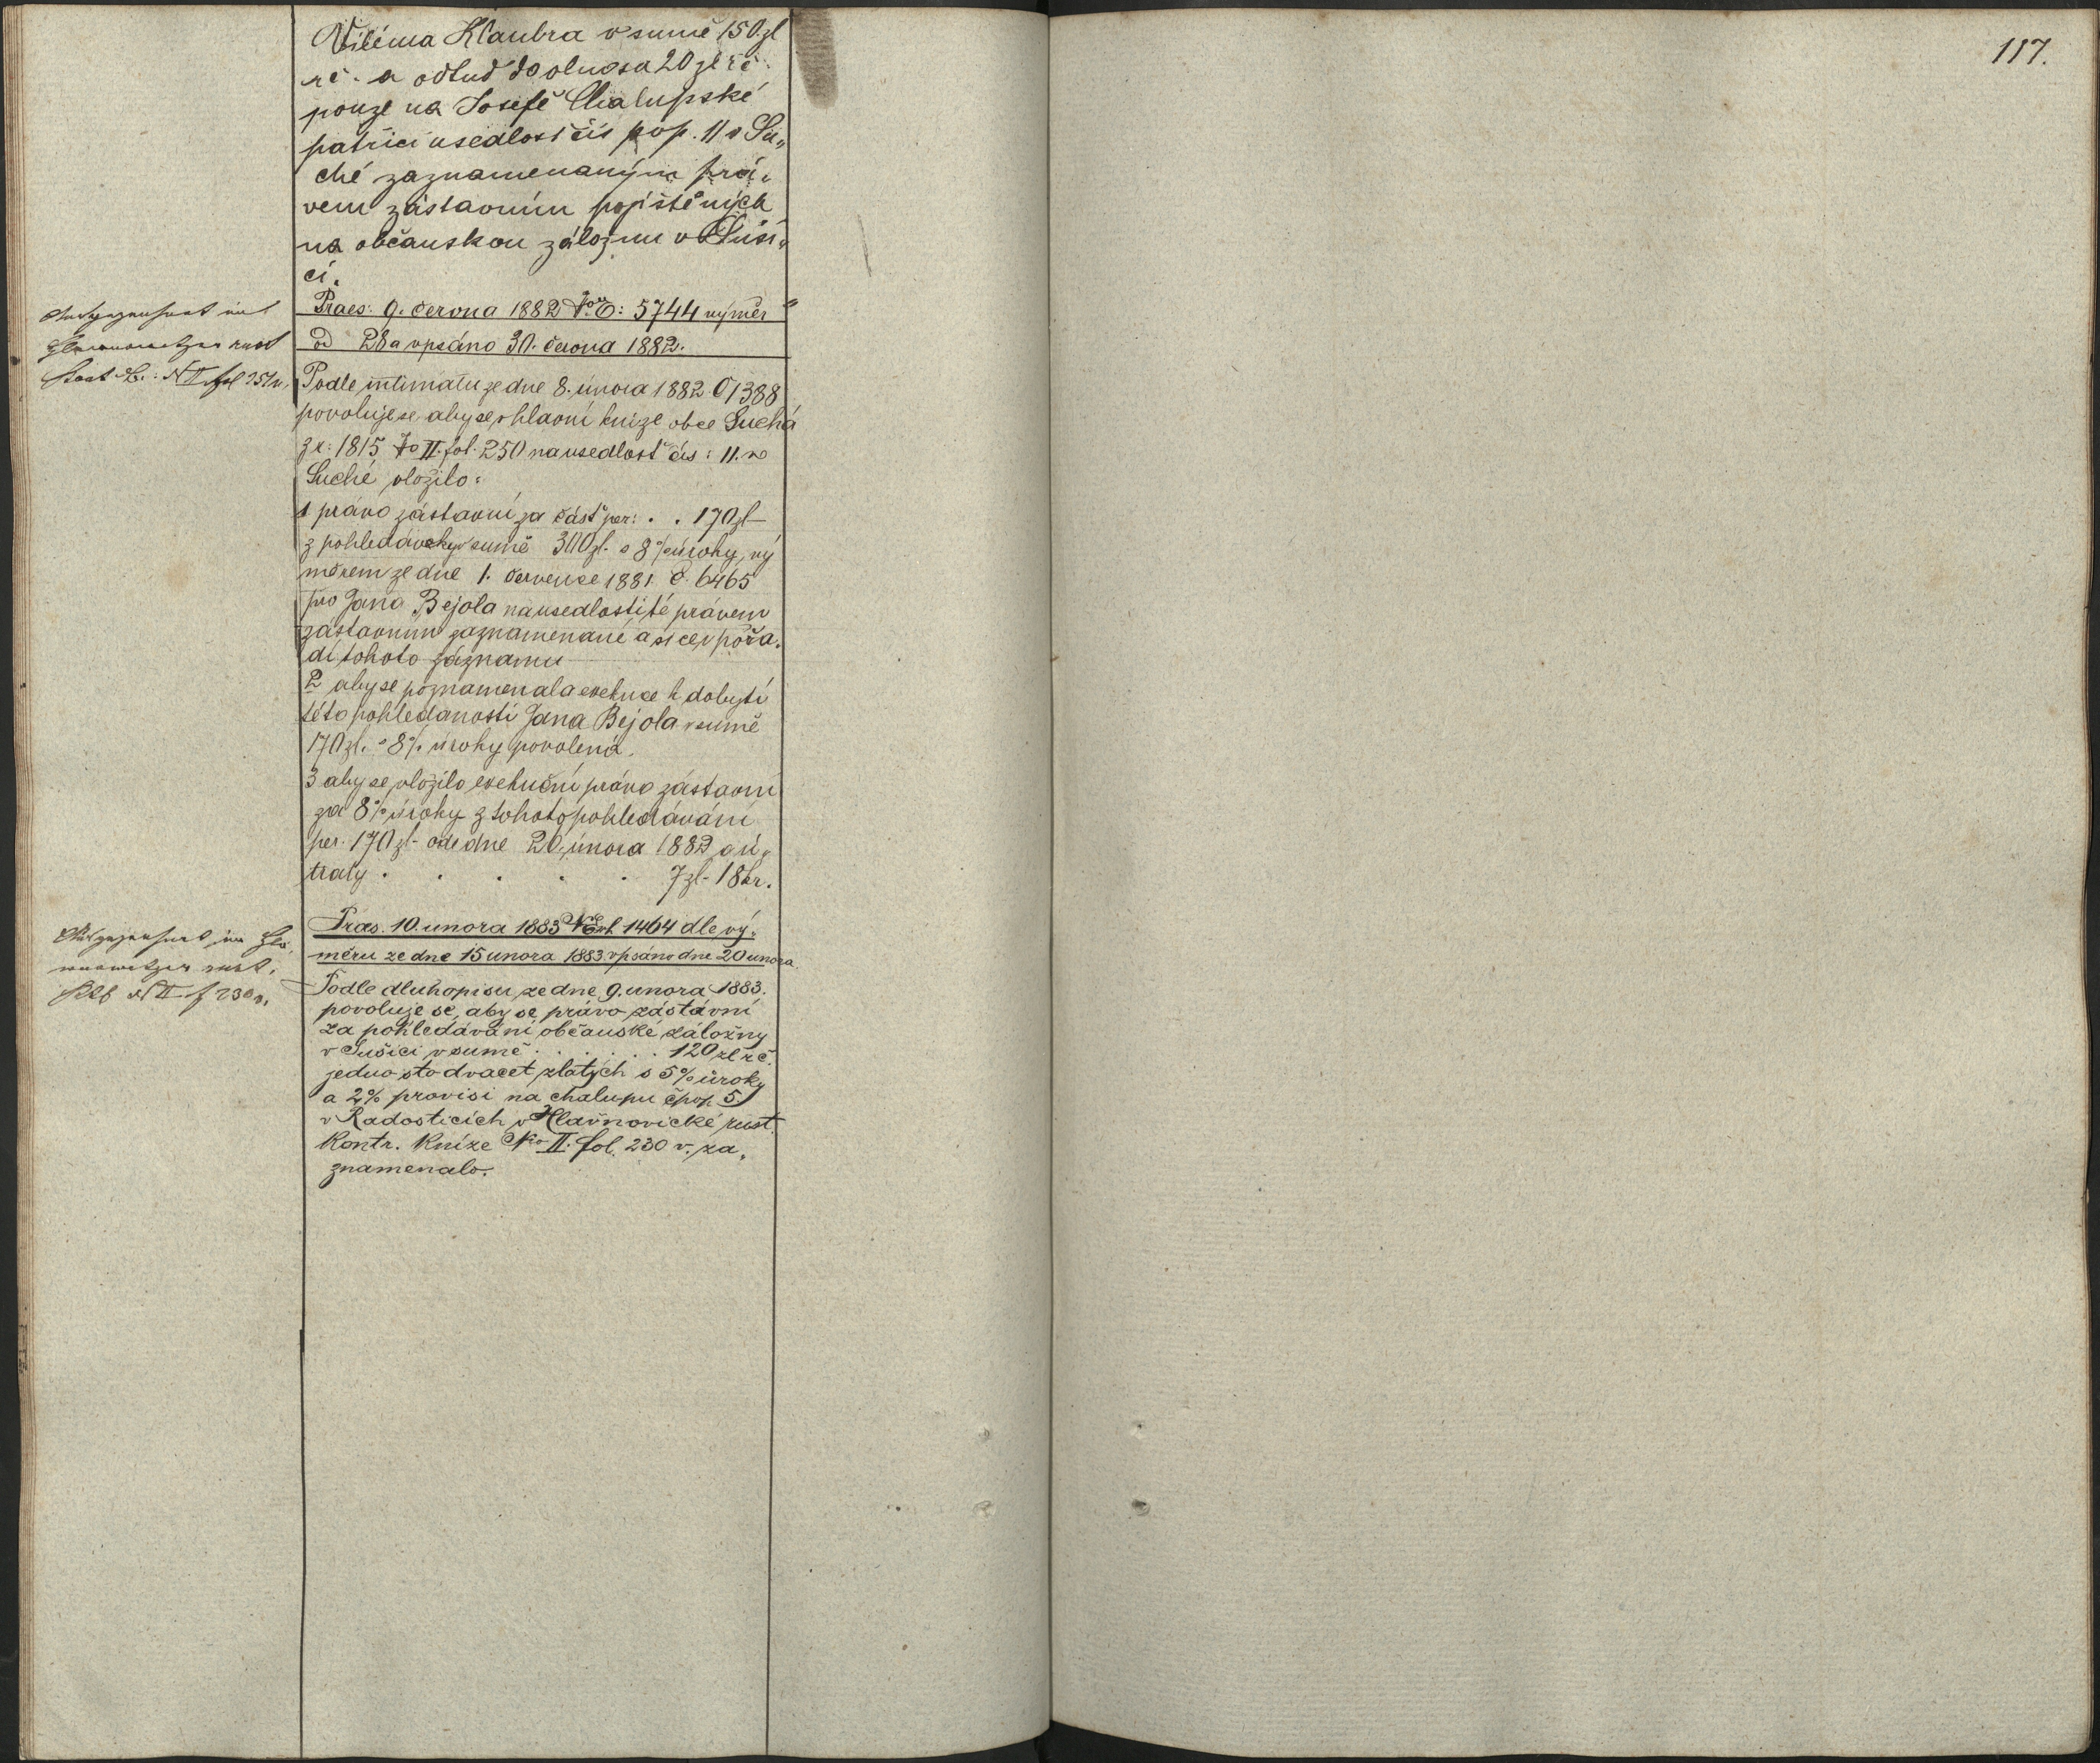 117.
Viléma Klaubra v sumě 150 zl
rč. a odtud do dluosa 20 zl rč.
pouze na Josefě Chalupské
patřící usedlost čís pop. 11 v Su„
ché zaznamenaným prá„
vem zástavním pojištěných
na občanskou záložnu v Suši„
ci.
Praes: 9. června 1882 č: 5744 výměr
od 28 a vpsáno 30. června 1882.
rust
N II fol 251v.
Podle intimatu ze dne 8. února 1882 č 1388
povoluje se aby se v hlavní knize obce Suchá
z r: 1815 To II. fol. 250 na usedlost čís: 11. v
Suché vložilo:
1 právo zástavní za část per: . . 170 zl
z pohledávky v sumě 300 zl. s 8% úroky, vý
měrem ze dne 1. července 1881. č. 6465
pro Jana Bejola na usedlosti té právem
zástavním zaznamenané a sice v pořa„
dí tohoto záznamu
2 aby se poznamenala exekuce k dobytí
této pohledanosti Jana Bejola v sumě
170 zl. s 8% úroky povolená.
3 aby se vložilo exekuční právo zástavní
za 8% úroky z tohoto pohledávání
per. 170 zl- ode dne 20. února 1882 a ú„
traty . . . . . 7 zl- 18 kr.
Praes. 10. unora 1883 N Exh 1464 dle vý„
měru ze dne 15 unora 1883 vpsáno dne 20 unora.
rust.
N II f 230v.
Podle dluhopisu ze dne 9. unora 1883.
povoluje se, aby se právo zástavní
za pohledávání občanské záložny
v Sušici v sumě . . . . . . 120 zl rč.
jedno sto dvacet zlatých s 5% úroky
a 2% provisi na chalupu čpop. 5.
v Radosticích v Hlavnovické rust.
kontr. knize Nro II. fol. 230 v. za„
znamenalo.